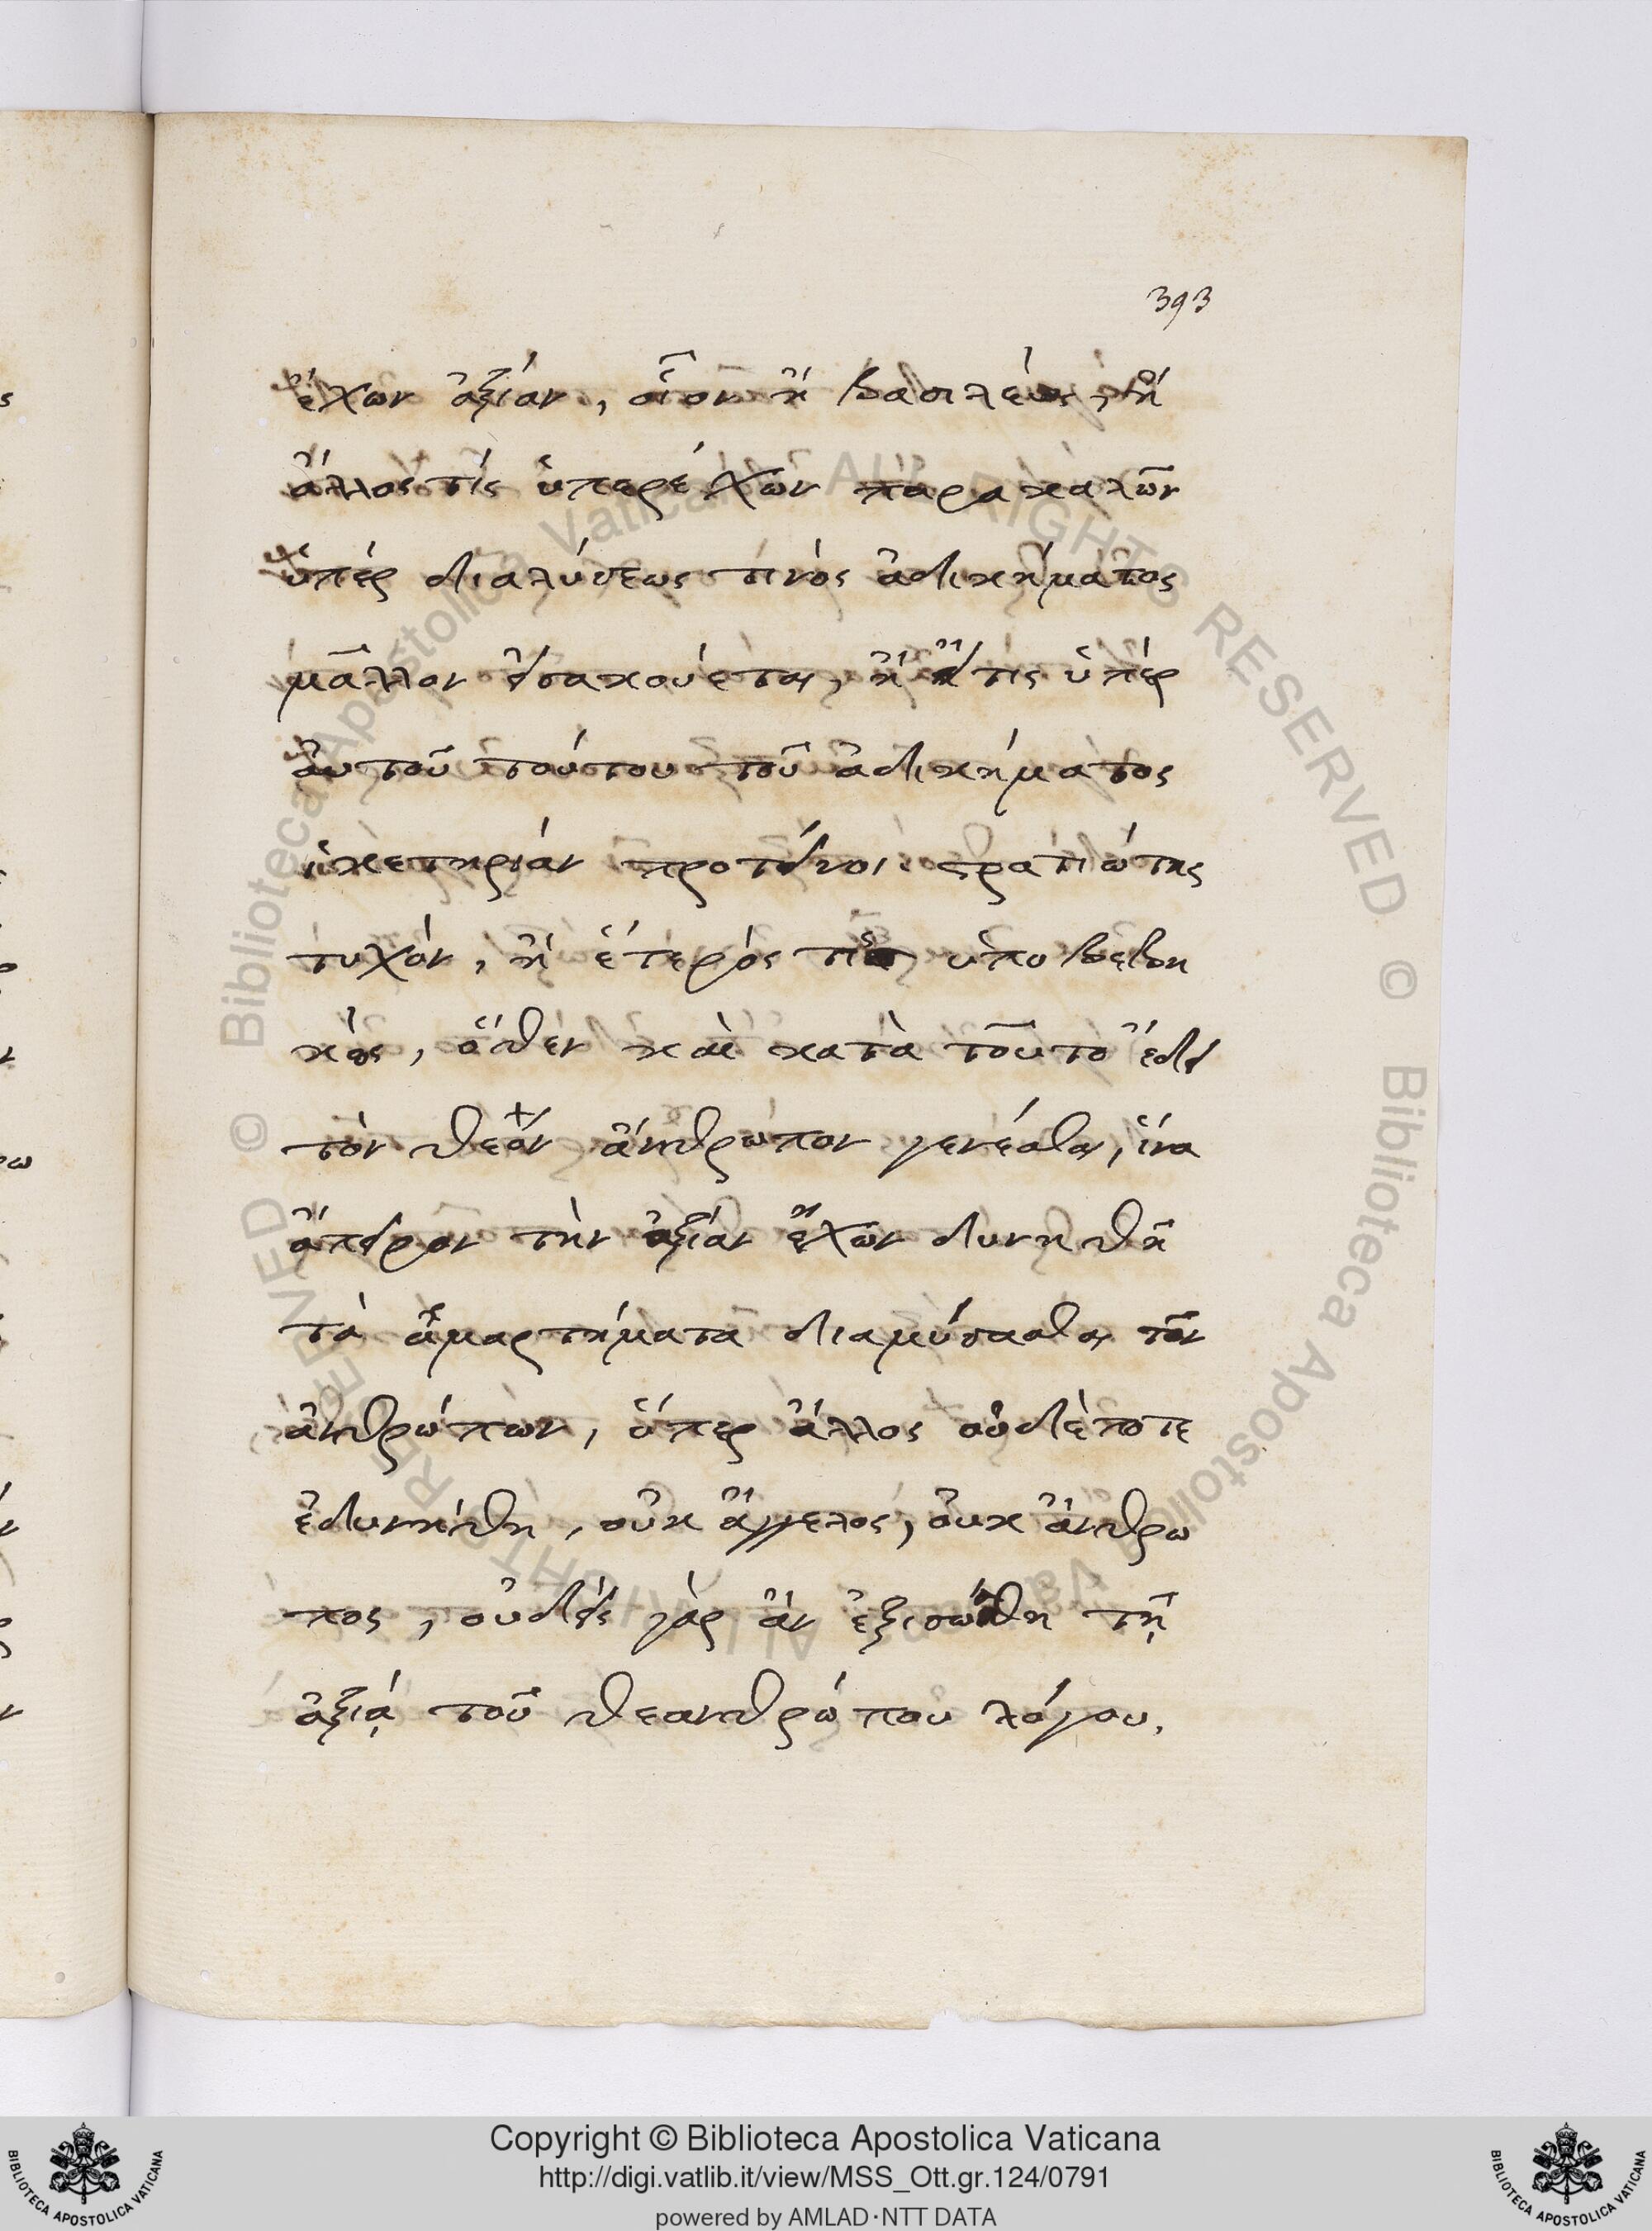 393
ἔχων ἀξίαν, οἷον ἢ βασιλεὺς, ἢ
ἄλλος τίς ὑπερέχων παρακαλῶν
ὑπὲρ διαλύσεως τινὸς ἀδικήματος
μᾶλλον εἰσακούεται, ἢ εἴ τις ὑπὲρ
αὐτοῦ τούτου τοῦ ἀδικήματος
ἱκετηρίαν προτείνοι στρατιώτης
τυχὸν, ἢ ἕτερός τις ὑποβεβη
κὼς, ὅθεν καὶ κατὰ τοῦτο ἔδει
τὸν θεὸν ἄνθρωπον γενέσθαι, ἵνα
ἄπειρον τὴν ἀξίαν ἔχων δυνηθῆ
τὰ ἁμαρτήματα διαλύσασθαι τῶν
ἀνθρώπων, ὅπερ ἄλλος οὐδέποτε
ἐδυνήθη, οὐκ ἄγγελος, οὐκ ἄνθρω
πος, οὐδεὶς γὰρ ἂν ἐξισώθη τῆ
ἀξίᾳ τοῦ θεανθρώπου λόγου.
Copyright © Biblioteca Apostolica Vaticana
http://digi.vatlib.it/view/MSS_Ott.gr.124/0791
powered by AMLAD·NTT DATA